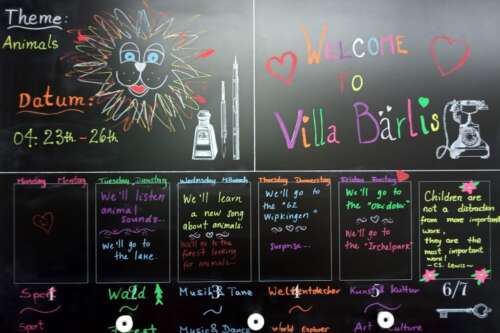 Theme:
Animals
Datum:
04. 23th - 26th
WELCOME
TO
Villa Bärlis
Monday Montag
Tuesday Dienstag
We'll listen
animal
sounds...
We'll go to
the lake.
Wednesday Mittwoch
We'll learn
a new song
about animals.
We'll go to the
forest looking
for animals...
Thursday Donnerstag
We'll go
to the
"GZ
Wipkingen"
Surprise...
We'll go to
the
We'll go to
the "Irchelpark"
Children are
not a distraction
from more important
work,
they are the
most important
work!
-C.S. Lewis-
1
2
3
4
5
6/7
Sport
Wald
Musik & Tanz
Weltentdecker
Kunst & Kultur
Sport
Forest
Music & Dance
World Explorer
Art Culture